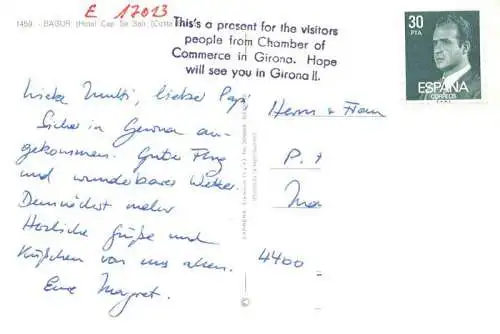 E 17023
1459. - BAGUR (Hotel Cap Sa Sal) (Costa
This's a present for the visitors
people from Chamber of
Commerce in Girona. Hope
will see you in Girona!!.
30
PTA
ESPAÑA
CORREOS
Liebe Mutti, lieber Papi
Sicher in Gerona an-
gekommen. Guter Flug
und wunderbares Wetter.
Demnächst mehr
Herzliche Grüße und
Küßchen von uns allen.
Eure Margret.
Herrn + Frau
P.
4400